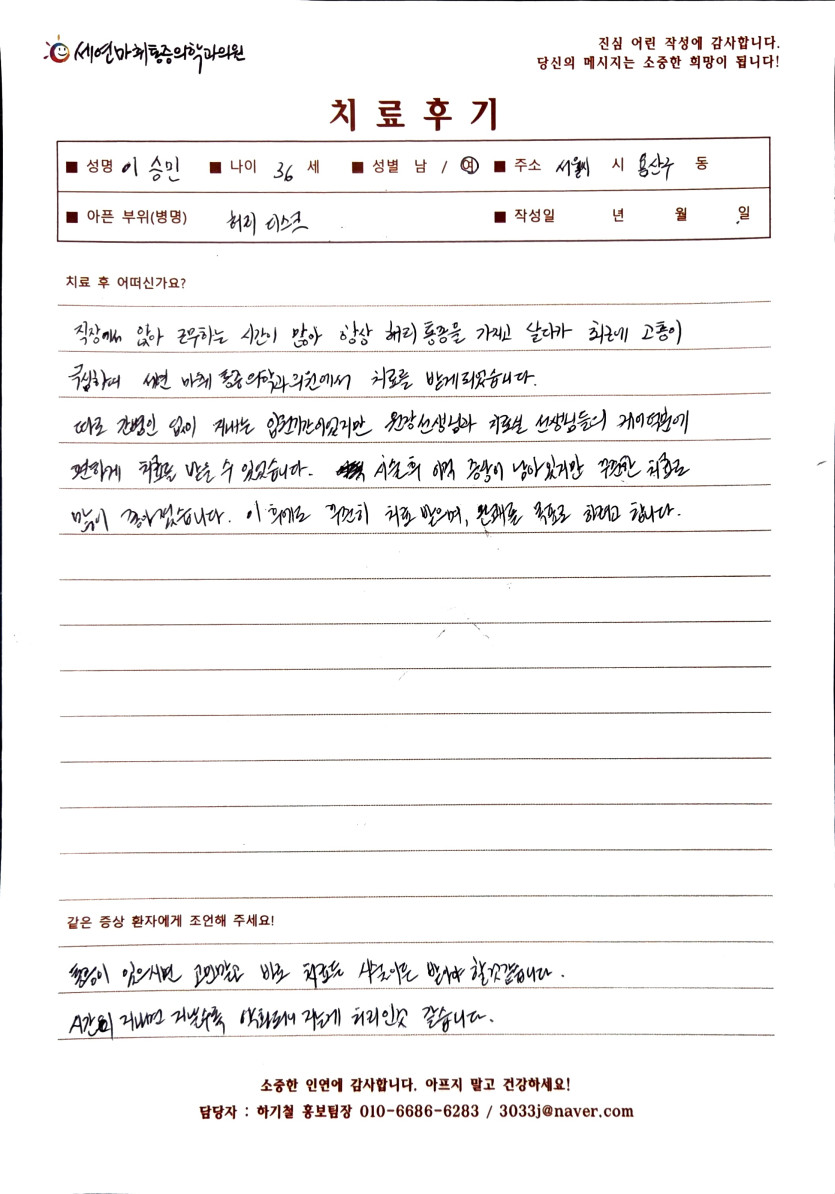 세연마취통증의학과의원
진심 어린 작성에 감사합니다.
당신의 메시지는 소중한 희망이 됩니다!
치료후기
■ 성명 이승민 ■ 나이 36 세 ■ 성별 남 / 여 ■ 주소 서울시 시 용산구 동
■ 아픈 부위(병명) 허리 디스크 ■ 작성일 년 월 일
치료 후 어떠신가요?
직장에서 앉아 근무하는 시간이 많아 항상 허리통증을 가지고 살다가 최근에 고통이
극심하여 세연 마취 통증의학과의원에서 치료를 받게되었습니다.
따로 간병인 없이 지내는 입원기간이었지만 원장선생님과 치료실 선생님들의 케어덕분에
편하게 치료를 받을 수 있었습니다. 시술 후 아직 증상이 남아있지만 꾸준한 치료로
많이 좋아졌습니다. 이 후에도 꾸준히 치료 받으며, 완쾌를 목표로 하려고 합니다.
같은 증상 환자에게 조언해 주세요!
통증이 있으시면 고민말고 바로 치료든 시술이든 받아야 할것같습니다.
시간이 지나면 지날수록 악화되니 허리인것 같습니다.
소중한 인연에 감사합니다. 아프지 말고 건강하세요!
담당자 : 하기철 홍보팀장 010-6686-6283 / 3033j@naver.com